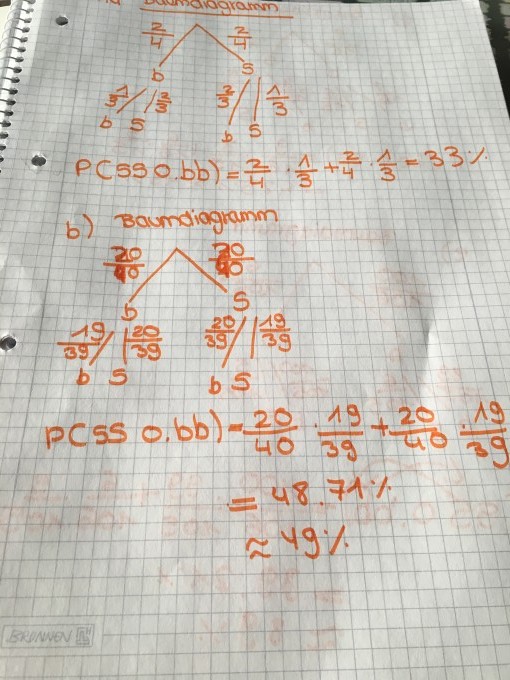 Baumdiagramm
2/4 2/4
b S
1/3 2/3 2/3 1/3
b S b S
P(SS o.bb) = 2/4 · 1/3 + 2/4 · 1/3 = 33%
b) Baumdiagramm
20/40 20/40
b S
19/39 20/39 20/39 19/39
b S b S
P(SS o.bb) = 20/40 · 19/39 + 20/40 · 19/39
= 48.71%
≈ 49%
BRUNNEN